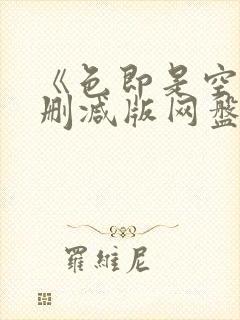 《色即是空
删减版网盘
羅維尼